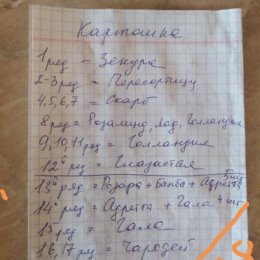 Картошка
1 ряд – Зекура
2-3 ряд – Пересортицу
4,5,6,7 = Скарб
8 ряд = Розалинд, Лад, Голландия
9, 10, 11 ряд = Голландия
12й ряд = Глазастая
13й ряд = Розара + Банба + Адретта 5 шт
14й ряд = Адретта + Гала 4 шт
15 ряд = Гала
16, 17 ряд = Чародей